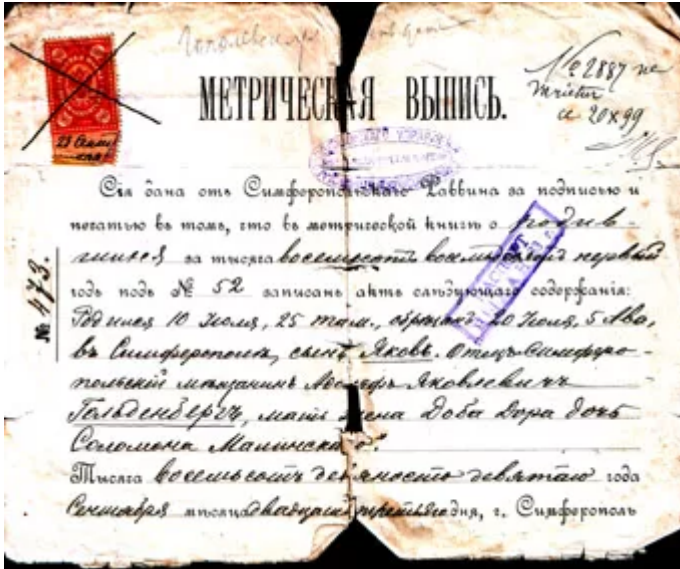 № 2887
20 X 99
МЕТРИЧЕСКАЯ ВЫПИСЬ.
23 Сентя
Сія дана отъ Симферопольскаго Раввина за подписью и
печатью въ томъ, что въ метрической книгѣ о родив-
шихся за тысяча восемьсотъ восемьдесятъ первый
годъ подъ № 52 записанъ актъ слѣдующаго содержанія:
№ 473.
Родился 10 Іюля, 25 Там., обрѣзанъ 20 Іюля, 5 Ава,
въ Симферополѣ, сынъ Яковъ. Отецъ Симферо-
польскій мѣщанинъ Адольфъ Яковлевичъ
Гольденбергъ, мать жена Доба Дора дочь
Соломона Малинскаго.
Тысяча восемьсотъ девяносто девятаго года
Сентября мѣсяца двадцать третьяго дня, г. Симферополь